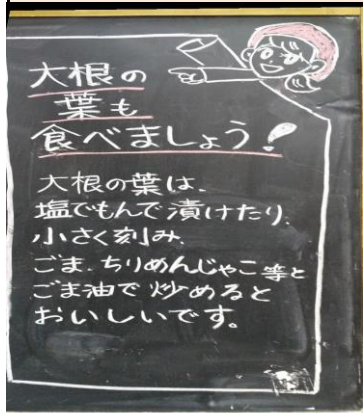 大根の
葉も
食べましょう!
大根の葉は、
塩でもんで漬けたり、
小さく刻み、
ごま、ちりめんじゃこ等と
ごま油で炒めると
おいしいです。